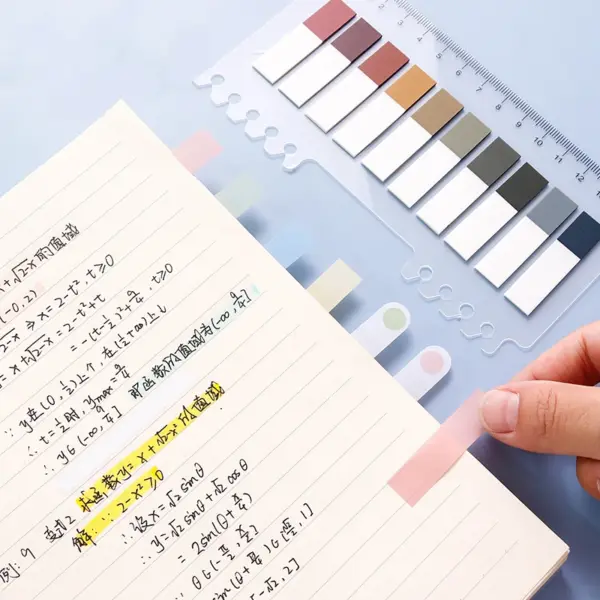 +√2-x 的值域
(-∞,2)
2-x ⇒ x=2-t², t≥0
x+√2-x = 2-t²+t
= -(t-½)²+9/4, t≥0
∵ y在(0,½)上个,在(½,+∞)上↓
∴ t=½时, ymax=9/4
∴ y∈(-∞,9/4] 即函数的值域为(-∞,9/4]
例:9 变式2 求函数y=x+√2-x²的值域
解: ∵ 2-x²≥0
∴设x=√2sinθ
∴ y=√2sinθ+√2cosθ
=2sin(θ+π/4)
θ∈[-π/2,π/2]
sin(θ+π/4)∈[-√2/2,1]
[-√2,2]
3 4 5 6 7 8 9 10 11 12